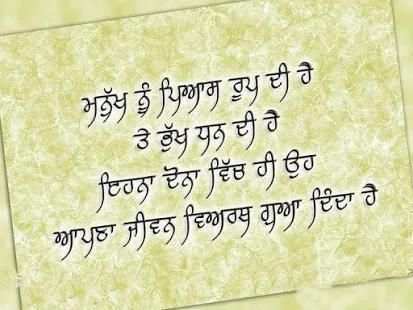 ਮਨੁੱਖ ਨੂੰ ਪਿਆਸ ਰੂਪ ਦੀ ਹੈ
ਤੇ ਭੁੱਖ ਧਨ ਦੀ ਹੈ
ਇਹਨਾ ਦੋਨਾ ਵਿੱਚ ਹੀ ਉਹ
ਆਪਣਾ ਜੀਵਨ ਵਿਅਰਥ ਗੁਆ ਦਿੰਦਾ ਹੈ